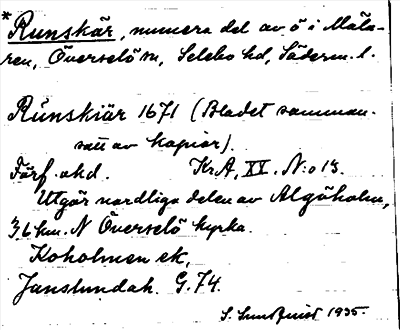 * Runskär, numera del av ö i Mäla-
ren, Överselö sn, Selebo hd, Söderm. l.
Runskiär 1671 (Bladet samman-
satt av kopior).
Förf. okd. Kr.A, XX. N:o 13.
Utgör nordliga delen av Algöholm,
3,6 km. N Överselö kyrka.
Koholmen ek,
Janslundah. G. 74.
S. Sundquist 1935.